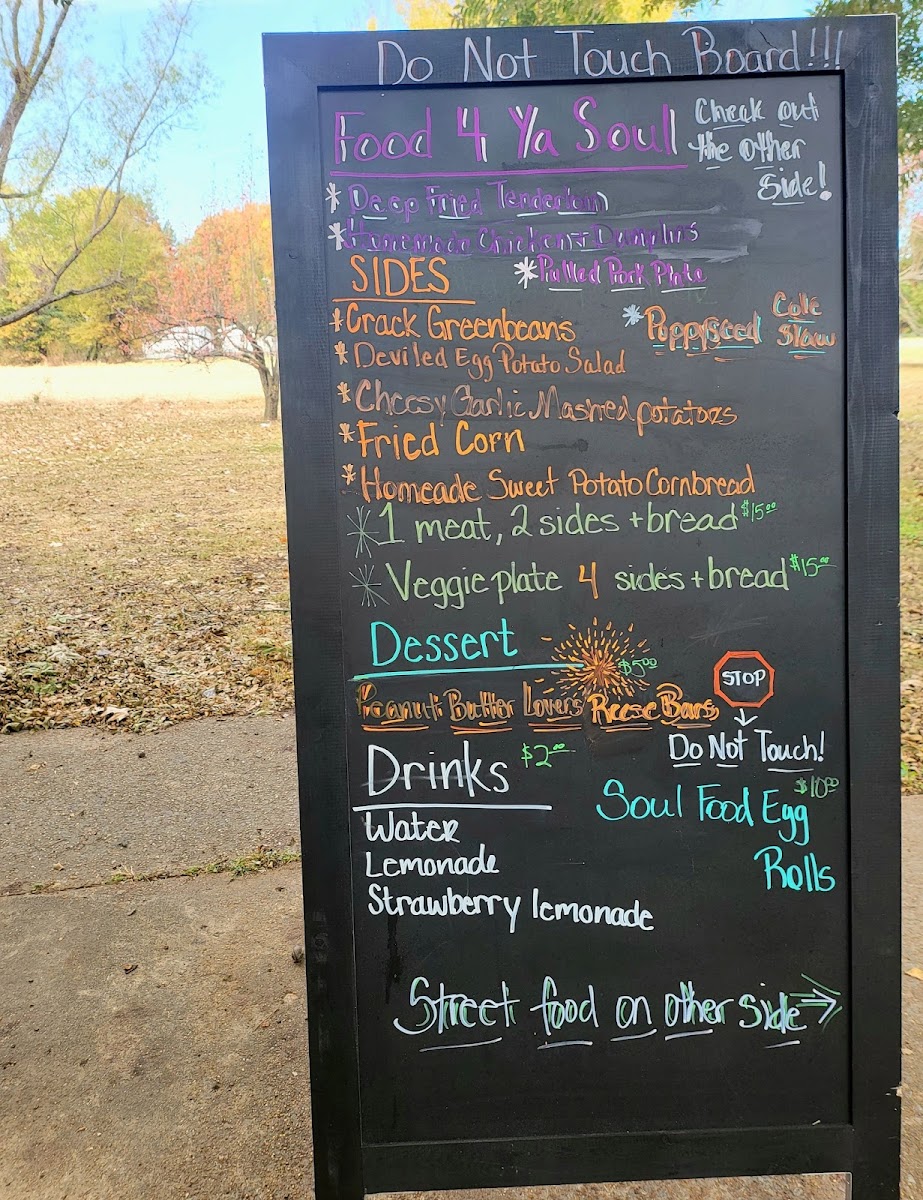 Do Not Touch Board!!!
Food 4 Ya Soul
Check out
the other
side!
* Deep Fried Tenderloin
* Homemade Chicken + Dumplins
SIDES
* Pulled Pork Plate
* Crack Greenbeans
* Poppyseed Cole
Slaw
* Deviled Egg Potato Salad
* Cheesy Garlic Mashed potatoes
* Fried Corn
* Homeade Sweet Potato Cornbread
* 1 meat, 2 sides + bread $15.00
* Veggie plate 4 sides + bread $15.00
Dessert
$5.00
Peanut Butter Lovers Reese Bars
STOP
Do Not Touch!
Drinks $2.00
Water
Lemonade
Strawberry lemonade
$10.00
Soul Food Egg
Rolls
Street food on other side